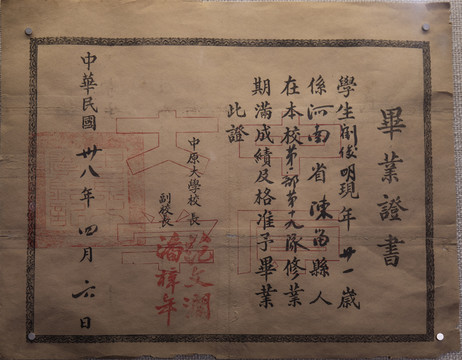 畢業證書
學生俊明現年廿一歲
係河南省陳留縣人
在本校第部第九隊修業
期滿成績及格准予畢業
此證
中原大學校長 范文瀾
副校長 潘梓年
中華民國卅八年四月六日